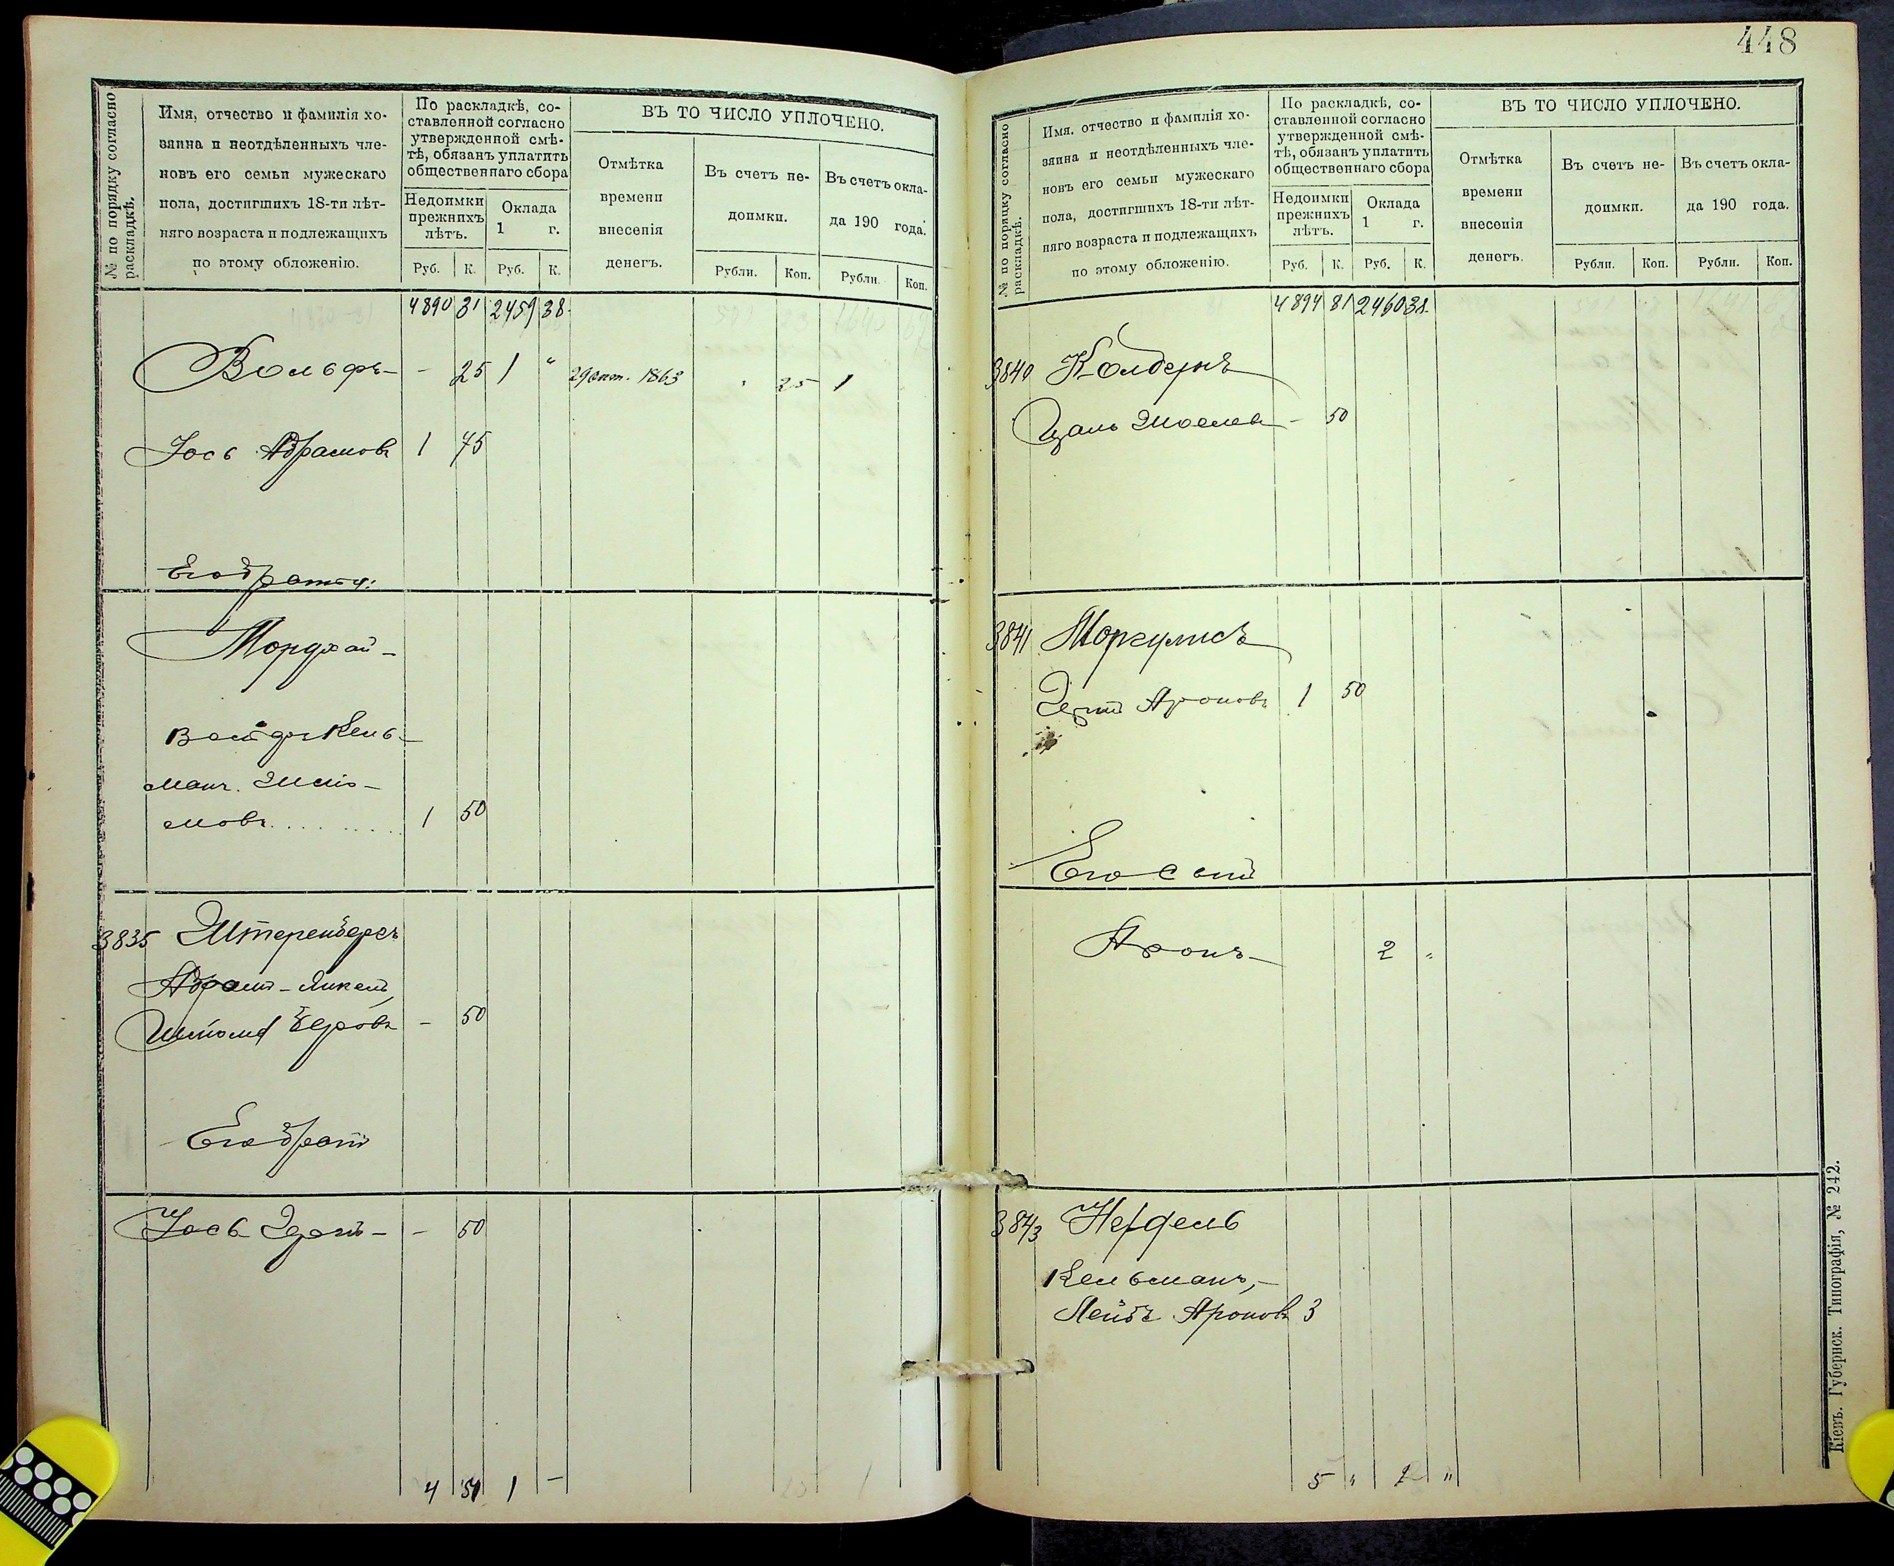 448
№ по порядку согласно раскладкѣ.
Имя, отчество и фамилія хо-
зяина и неотдѣленныхъ чле-
новъ его семьи мужескаго
пола, достигшихъ 18-ти лѣт-
няго возраста и подлежащихъ
по этому обложенію.
По раскладкѣ, со-
ставленной согласно
утвержденной смѣ-
тѣ, обязанъ уплатить
общественнаго сбора
Недоимки
прежнихъ
лѣтъ.
Оклада
1 г.
Руб. К. Руб. К.
ВЪ ТО ЧИСЛО УПЛОЧЕНО.
Отмѣтка
времени
внесенія
денегъ.
Въ счетъ не-
доимки.
Рубли. Коп.
Въ счетъ окла-
да 190 года.
Рубли. Коп.
4890 31 2459 38
Вольфъ - 25 1 " 25 1
Іось Абрамовъ 1 75
Его братья:
Мордхай
Кель-
манъ
мовъ 1 50
3835 Штеренбергъ
Абрамъ-Янкель,
- 50
Его братъ
Іось - 50
4 50 1 -
№ по порядку согласно раскладкѣ.
Имя, отчество и фамилія хо-
зяина и неотдѣленныхъ чле-
новъ его семьи мужескаго
пола, достигшихъ 18-ти лѣт-
няго возраста и подлежащихъ
по этому обложенію.
По раскладкѣ, со-
ставленной согласно
утвержденной смѣ-
тѣ, обязанъ уплатить
общественнаго сбора
Недоимки
прежнихъ
лѣтъ.
Оклада
1 г.
Руб. К. Руб. К.
ВЪ ТО ЧИСЛО УПЛОЧЕНО.
Отмѣтка
времени
внесенія
денегъ.
Въ счетъ не-
доимки.
Рубли. Коп.
Въ счетъ окла-
да 190 года.
Рубли. Коп.
4894 81 2460 38
3840
- 50
3841 Моргулисъ
Ароновъ 1 50
Его сынъ
Аронъ 2 "
3843
Кельманъ,
Лейбъ Ароновъ 3
5 " 2 "
Кіевъ. Губернск. Типографія, № 242.